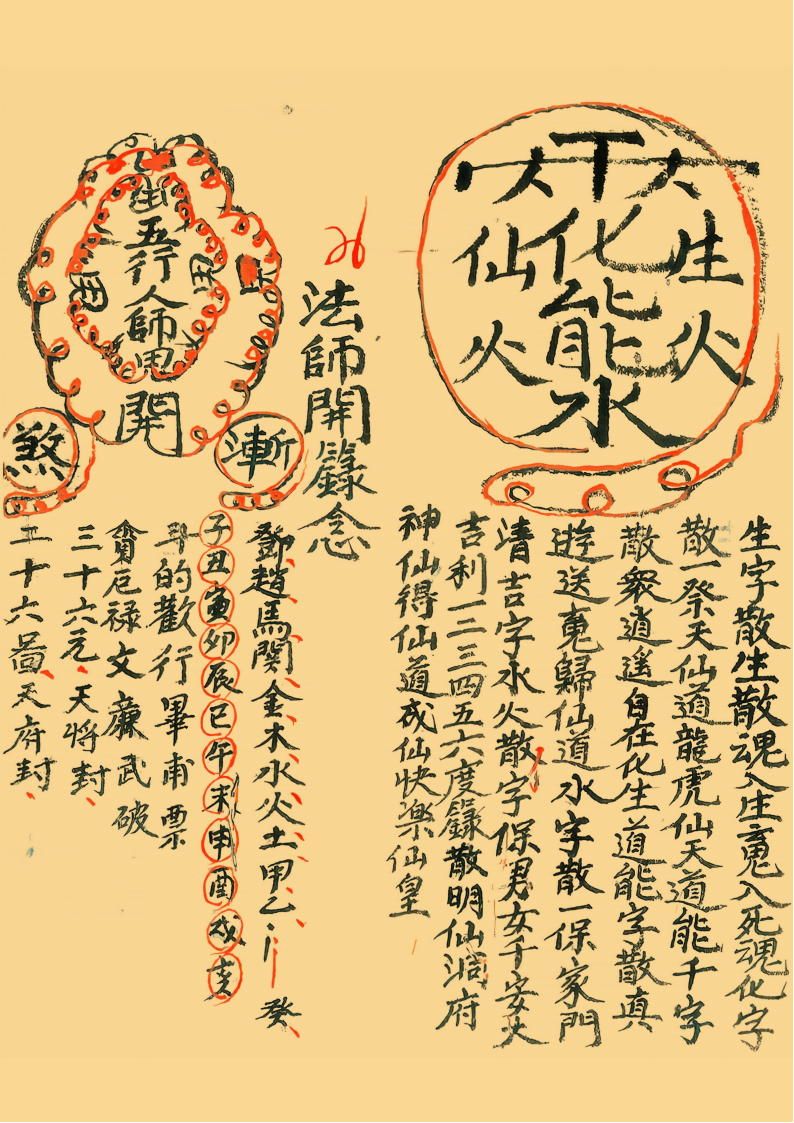 生火
千化能水
仙火
生字散生散魂入生魂入死魂化字
散一祭天仙道龍虎仙天道能千字
散眾逍遥自在化生道能字散真
遊送魂歸仙道水字散一保家門
清吉字水火散字保男女千安火
吉利一二三四五六度籙散明仙洞府
神仙得仙道成仙快樂仙皇
26
法師開籙念
鄧趙馬関金木水火土甲乙癸
子丑寅卯辰巳午未申酉戌亥
斗的歡行畢甫票
貪巨禄文廉武破
三十六元天将封
二十六畐天府封
五行人師
開
煞
漸